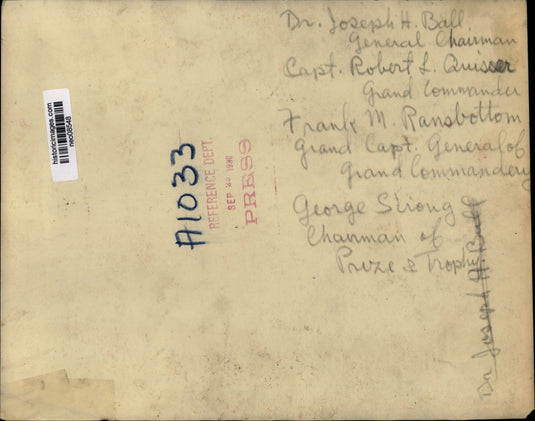 Dr. Joseph H. Ball
General Chairman
Capt. Robert L. Quisser
Grand Commander
Frank M. Ransbottom
Grand Capt. General of
Grand Commandery
George Strong
Chairman of
Prize & Trophy
Dr Joseph H. Ball
A1033
REFERENCE DEPT.
SEP 1930
PRESS
historicimages.com
neo08548